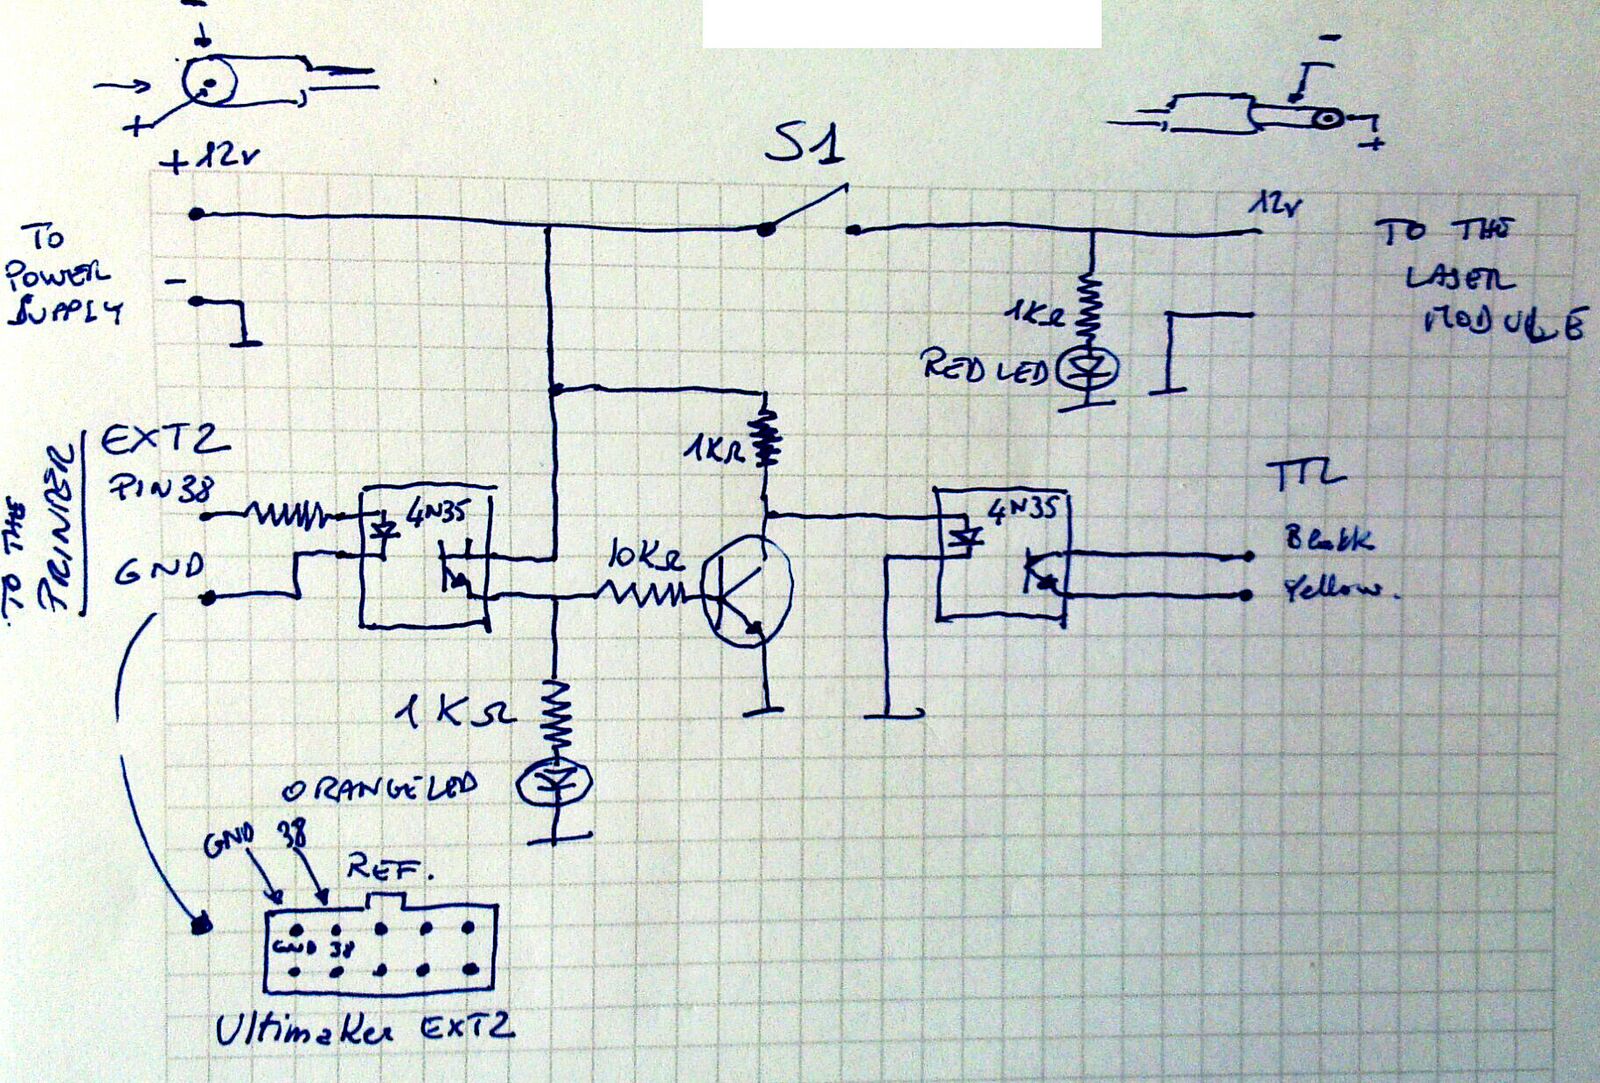 -
+
+12v
S1
-
+
12v
TO THE
LASER
MODULE
TO
POWER
SUPPLY
-
1KΩ
RED LED
TO THE
PRINTER
EXT2
PIN38
GND
4N35
1KΩ
10KΩ
4N35
TTL
Black
Yellow.
1KΩ
ORANGE LED
GND 38
REF.
GND 38
Ultimaker EXT2